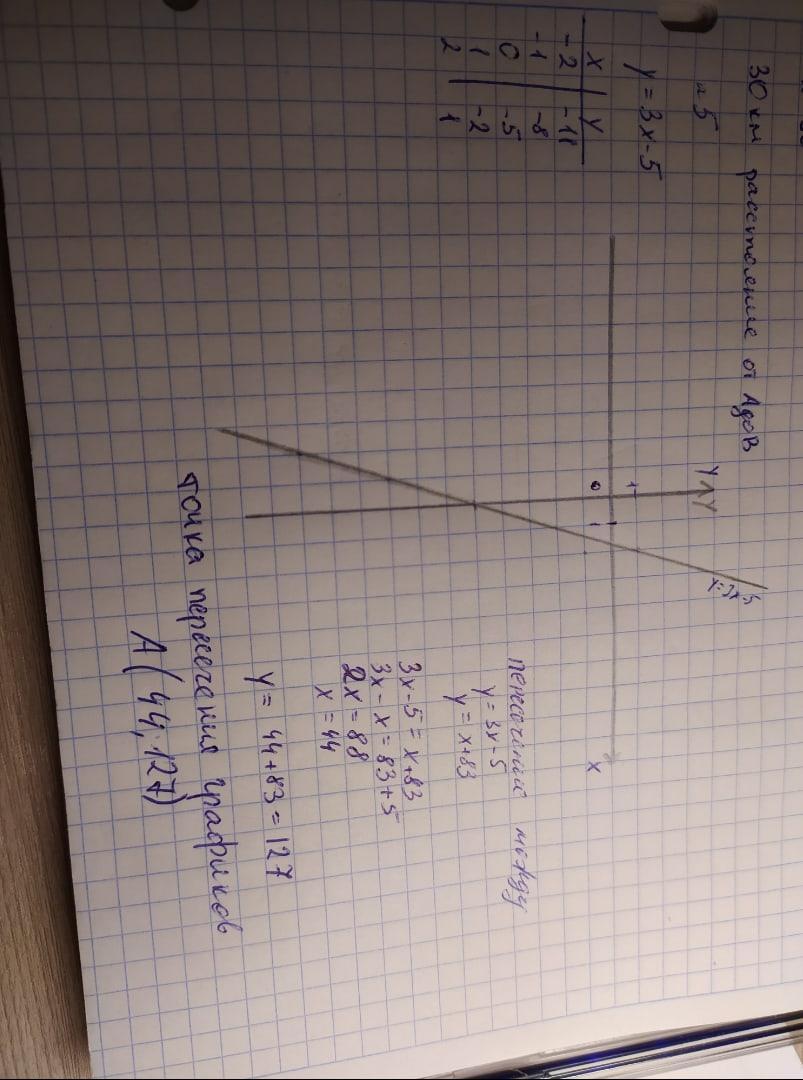 30 км расстояние от А до В
№5
y = 3x - 5
x | y
-2 | -11
-1 | -8
0 | -5
1 | -2
2 | 1
y
y
1
0
x
y=3x-5
между
y = 3x-5
y = x+83
3x-5 = x+83
3x-x = 83+5
2x = 88
x = 44
y = 44+83 = 127
точка пересечения графиков
A(44; 127)